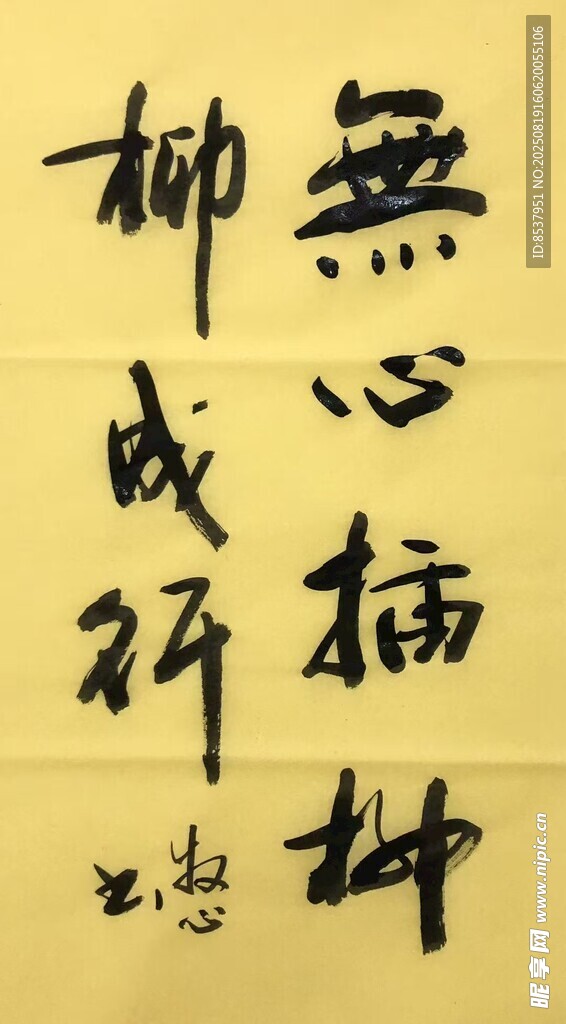 無心插柳
柳成行
牧心
书
ID:8537951 NO:20250819160620055106
昵享网 www.nipic.cn